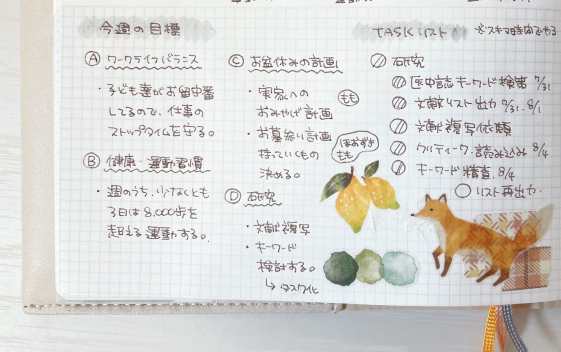 今週の目標
Ⓐ ワークライフバランス
・子ども達がお留守番
してるので、仕事の
ストップタイムを守る。
Ⓑ 健康・運動習慣
・週のうち、少なくとも
3日は8,000歩を
超える運動する。
Ⓒ お盆休みの計画
・実家への
おみやげ計画
もも
・お墓参り計画
持っていくもの
決める。
ほおずき
もも
Ⓓ 研究
・文献複写
・キーワード
検討する。
↳タスク化
TASKリスト
※スキマ時間でやる
研究
医中誌キーワード検索 7/31
文献リスト出力 7/31. 8/1
文献複写依頼
クリティーク・読み込み 8/4
キーワード精査. 8/4
リスト再出力.